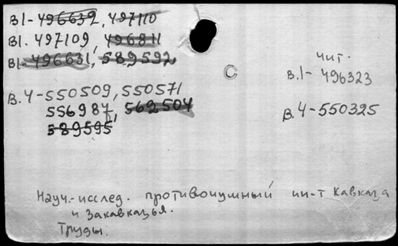 В1-496632, 497110
В1. 497109, 496811
В1-496631, 589592
В.4-550509, 550571
556987, 562504
589595
Чит.
В.1-496323
В.4-550325
Науч.-исслед. противочумный ин-т Кавказа
и Закавказья.
Труды.